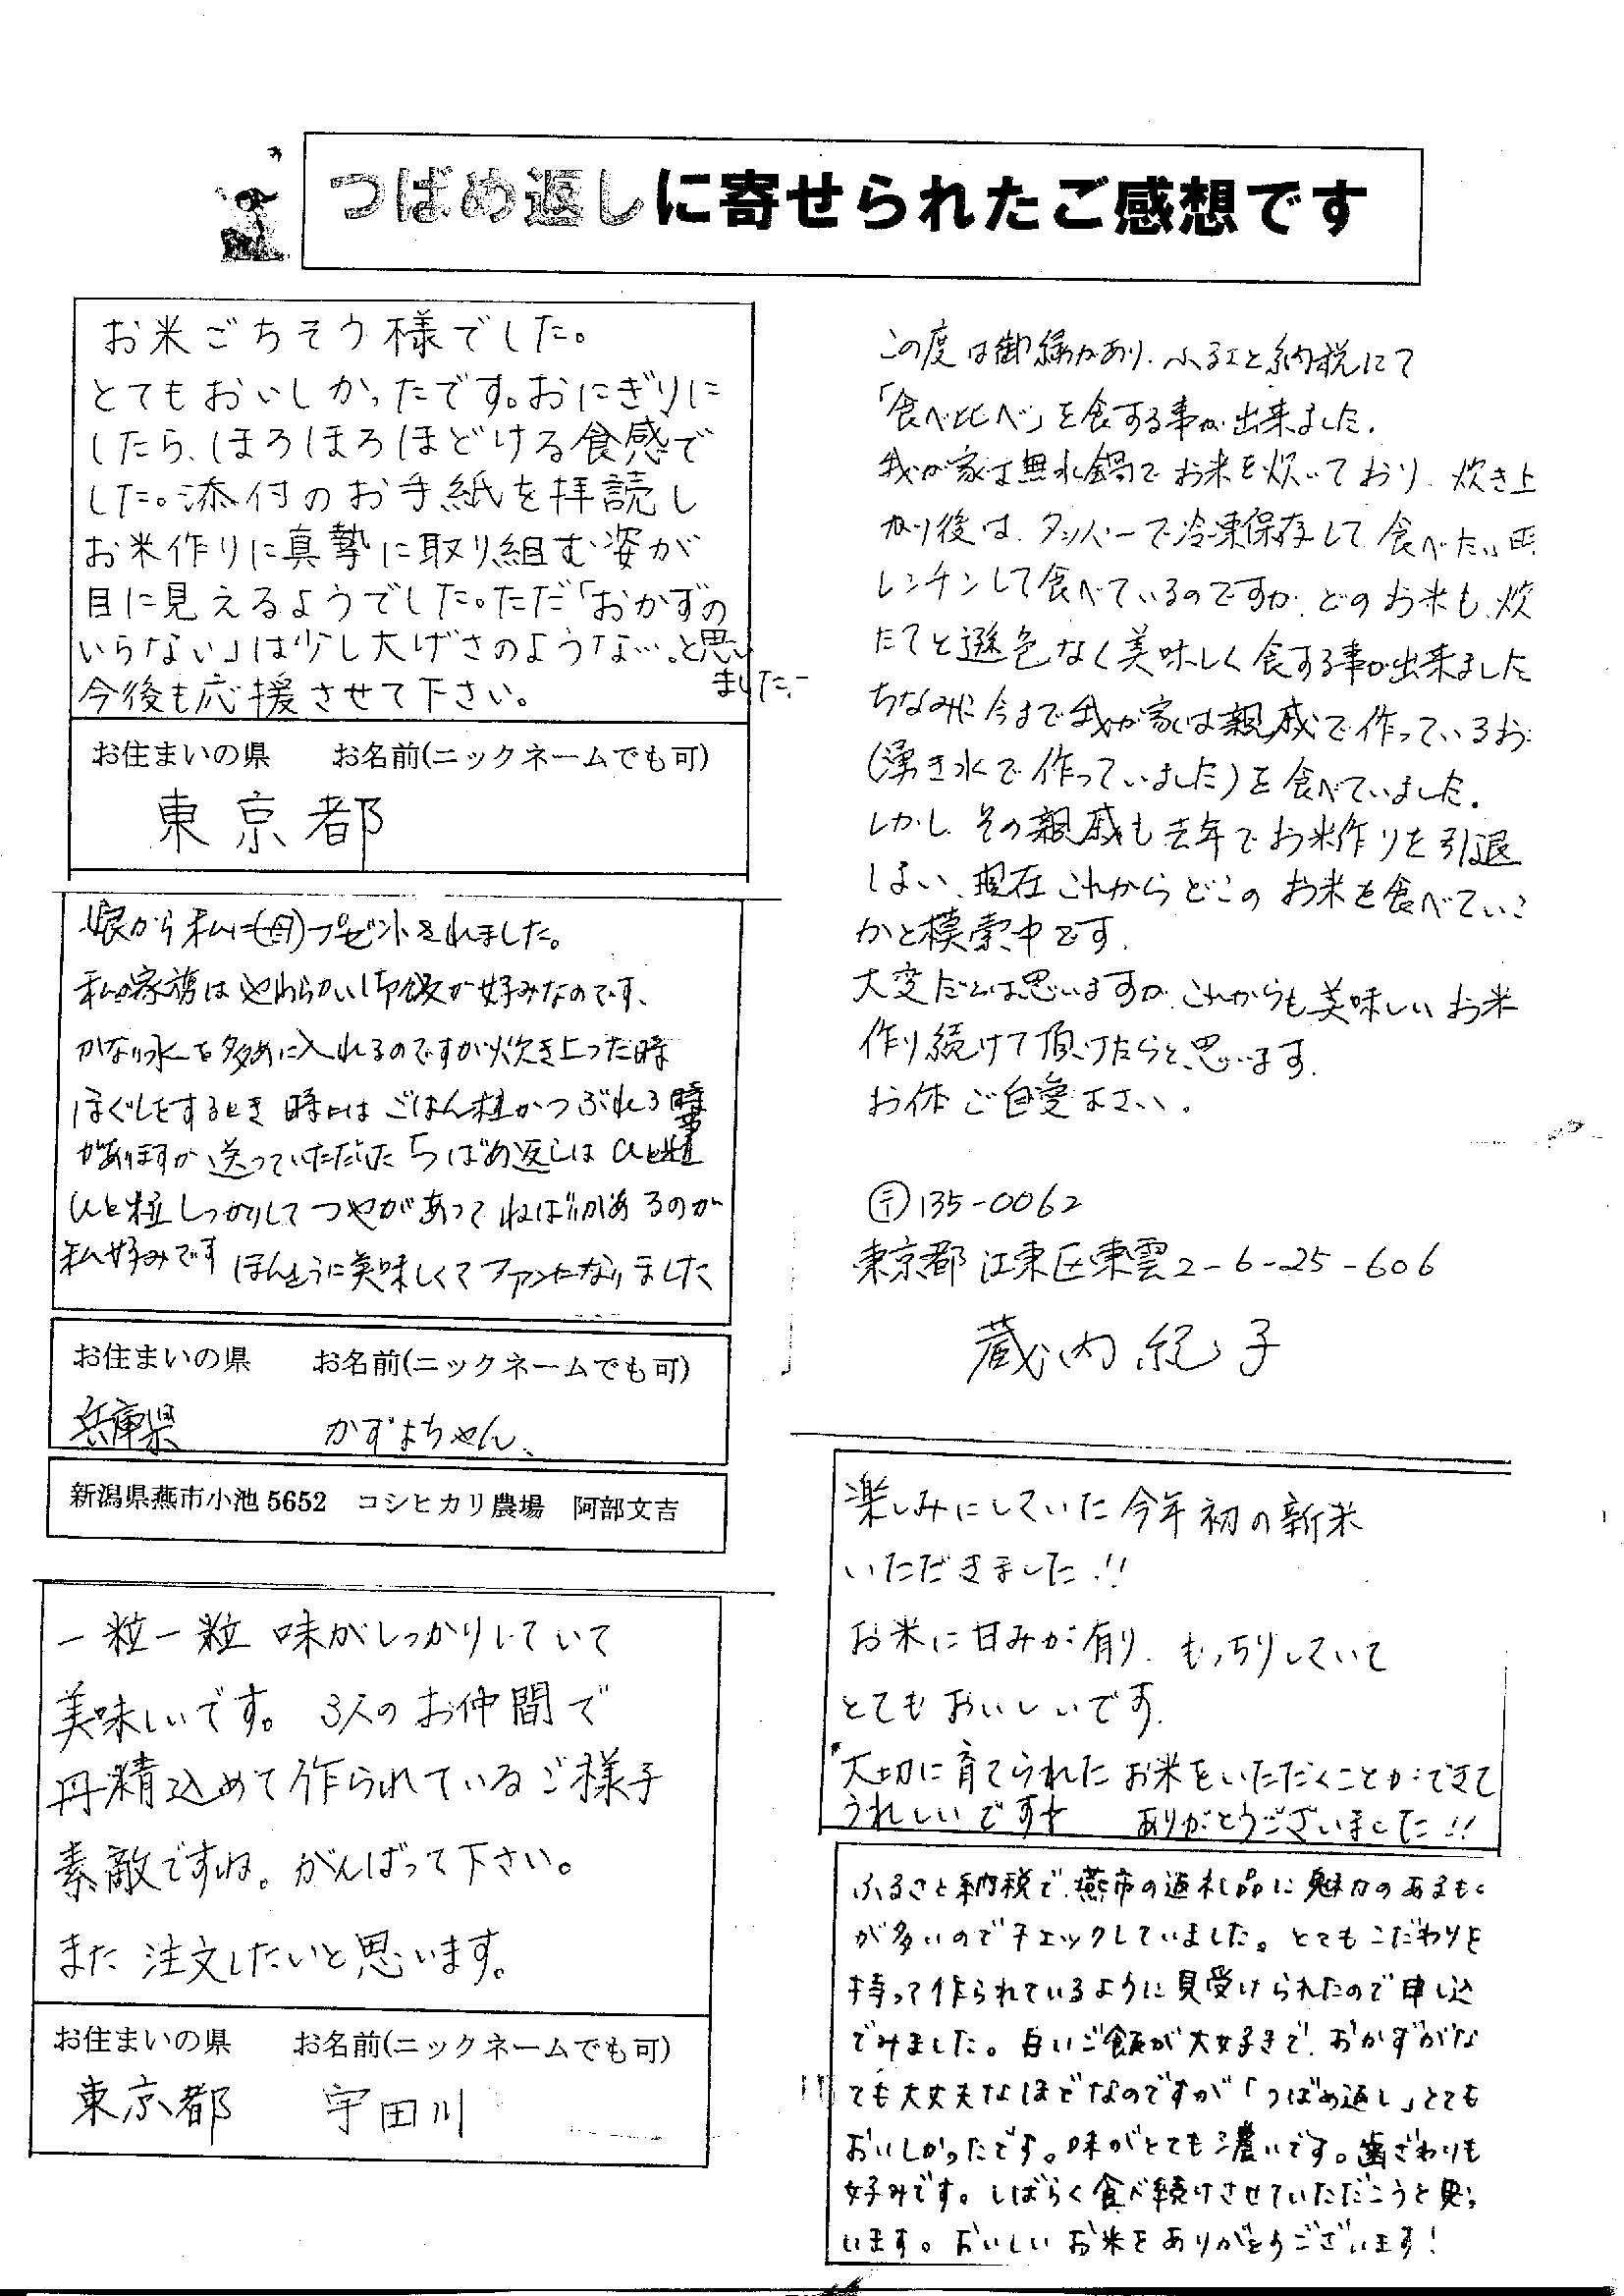 つばめ返しに寄せられたご感想です
お米ごちそう様でした。
とてもおいしかったです。おにぎりに
したら、ほろほろほどける食感で
した。添付のお手紙を拝読し
お米作りに真摯に取り組む姿が
目に見えるようでした。ただ「おかずの
いらない」は少し大げさのような…。と思い
ました。
今後も応援させて下さい。
お住まいの県 お名前(ニックネームでも可)
東京都
娘から私に(母)プレゼントされました。
私の家族はやわらかい御飯が好みなのです、
かなり水を多めに入れるのですが炊き上った時
ほぐしをするとき 時にはごはん粒がつぶれる事
がありますが送っていただいたつばめ返しはひと粒
ひと粒しっかりしてつやがあってねばりがあるのが
私好みです ほんとうに美味しくてファンになりました
お住まいの県 お名前(ニックネームでも可)
兵庫県 かずよちゃん、
新潟県燕市小池5652 コシヒカリ農場 阿部文吉
一粒一粒 味がしっかりしていて
美味しいです。3人のお仲間で
丹精込めて作られているご様子
素敵ですね。がんばって下さい。
また注文したいと思います。
お住まいの県 お名前(ニックネームでも可)
東京都 宇田川
この度は御縁があり、ふるさと納税にて
「食べ比べ」を食する事が出来ました。
我が家は無水鍋でお米を炊いており、炊き上
がり後は、タッパーで冷凍保存して食べたい時
レンチンして食べているのですが、どのお米も、炊
たてと遜色なく美味しく食する事が出来ました
ちなみに今まで我が家は親戚で作っているお
(湧き水で作っていました)を食べていました。
しかし、その親戚も去年でお米作りを引退
しまい、現在これからどこのお米を食べていこ
かと模索中です。
大変だとは思いますが、これからも美味しいお米
作り続けて頂けたらと、思います。
お体ご自愛下さい。
〒135-0062
東京都江東区東雲2-6-25-606
蔵内紀子
楽しみにしていた今年初の新米
いただきました!!
お米に甘みが有り、もっちりしていて
とてもおいしいです。
大切に育てられたお米をいただくことができて
うれしいです ありがとうございました!!
ふるさと納税で、燕市の返礼品に魅力のあるも
が多いのでチェックしていました。とてもこだわりを
持って作られているように見受けられたので申し込
でみました。白いご飯が大好きで、おかずがな
ても大丈夫なほどなのですが「つばめ返し」とても
おいしかったです。味がとても濃いです。歯ざわりも
好みです。しばらく食べ続けさせていただこうと思
います。おいしいお米をありがとうございます!